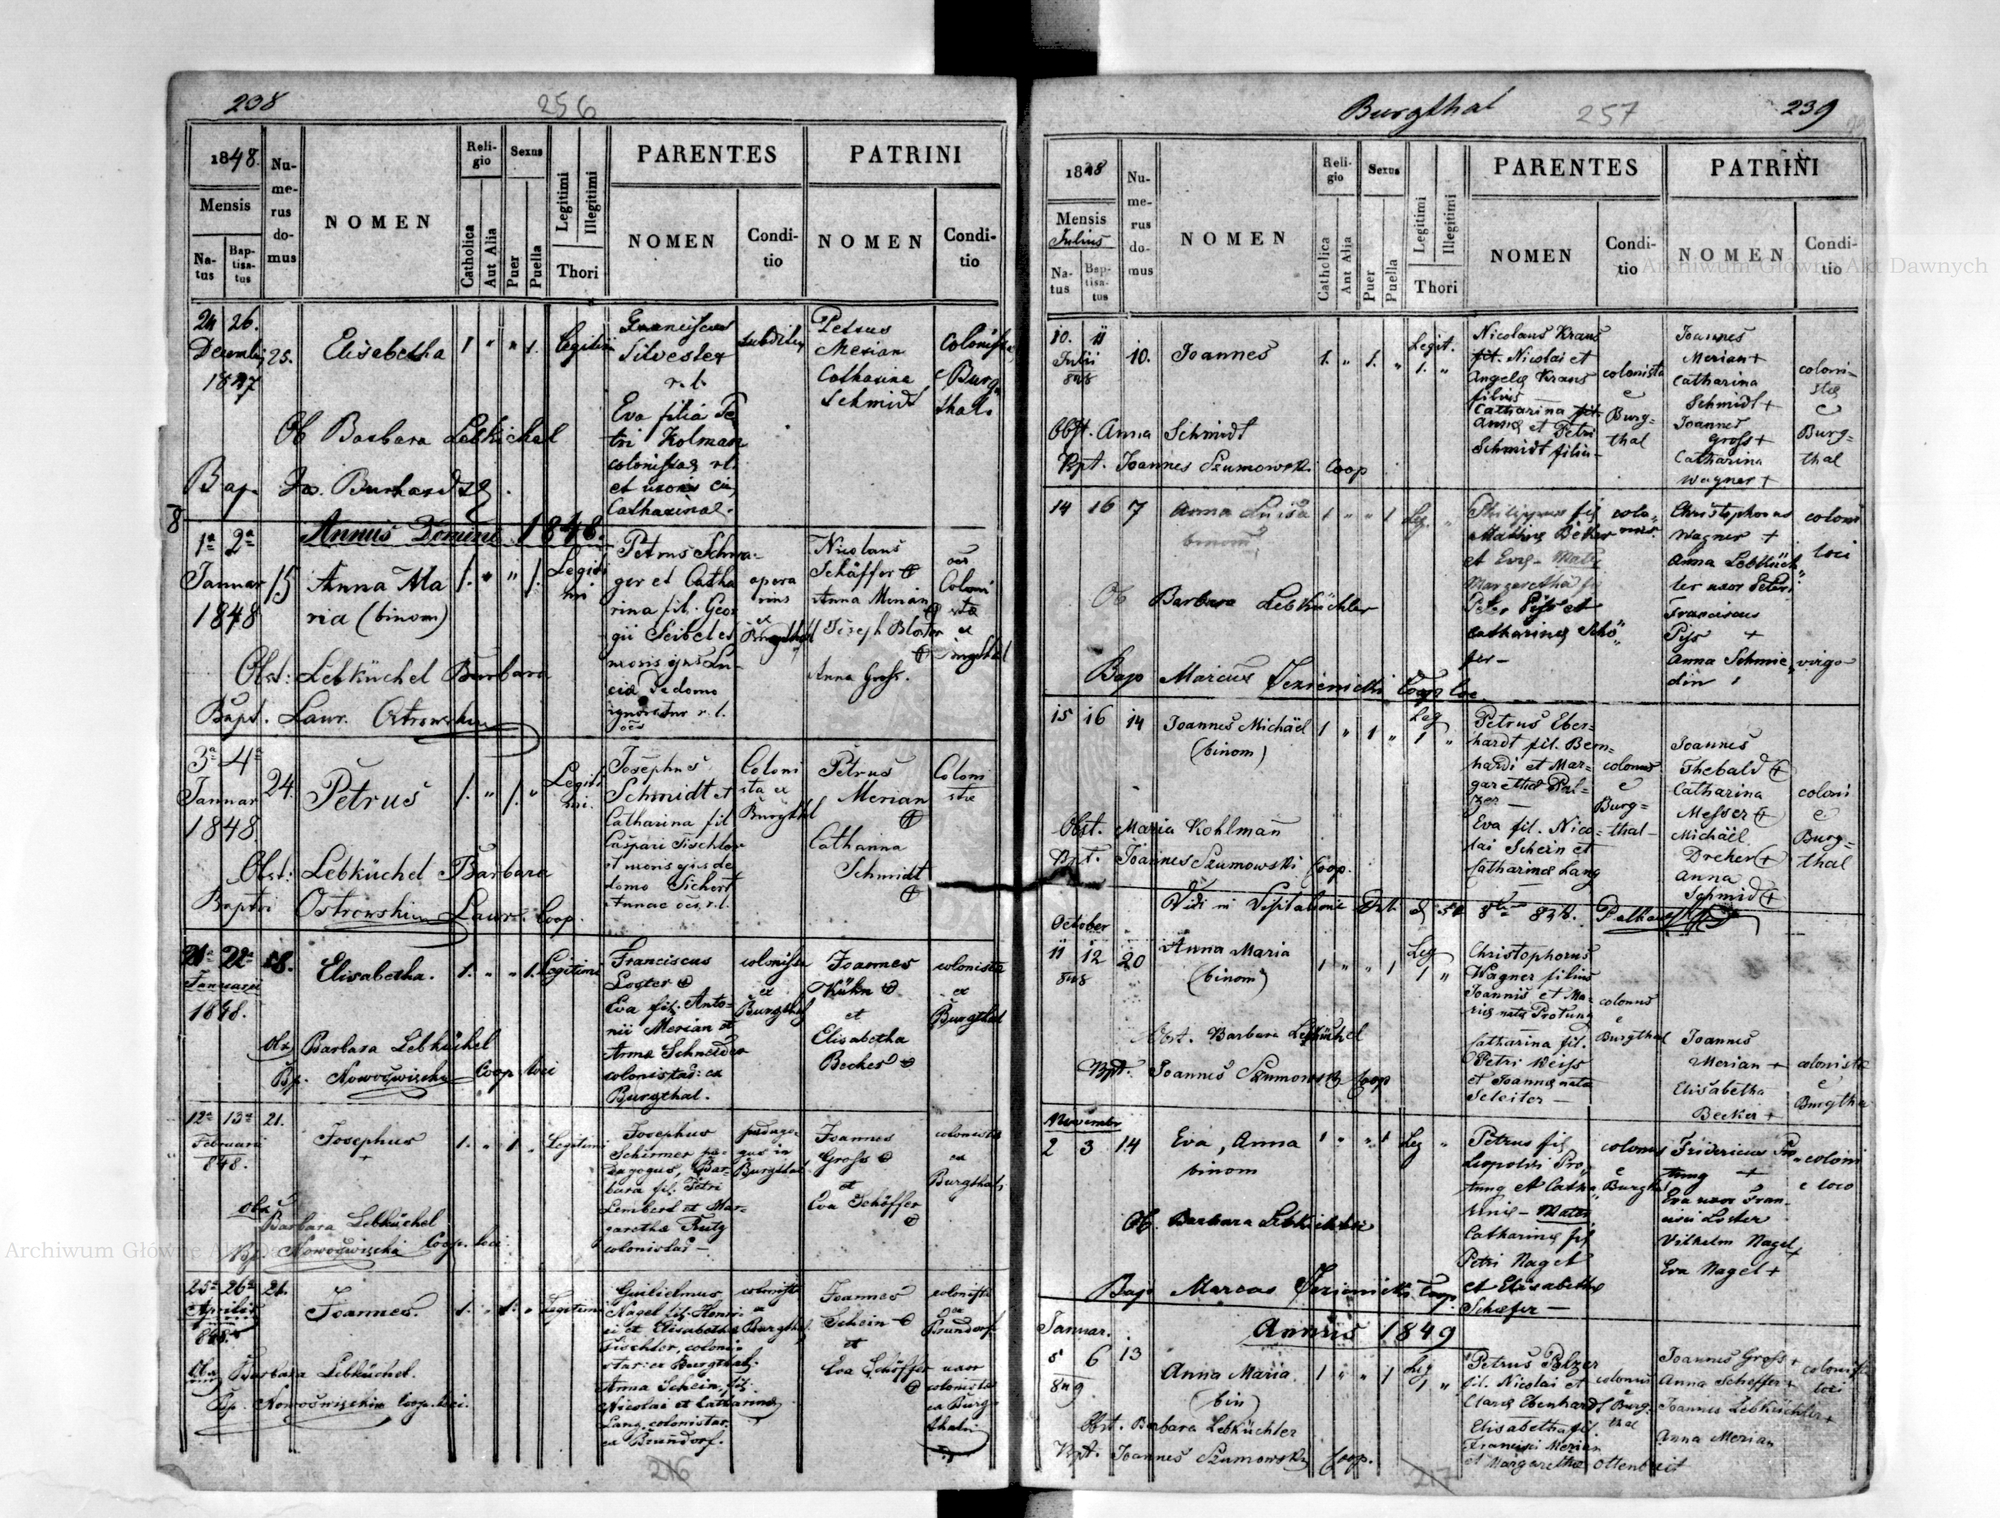 238
256
1848.
Mensis
Na-
tus
Bap-
tisa-
tus
Nu-
me-
rus
do-
mus
NOMEN
Reli-
gio
Catholica
Aut Alia
Sexus
Puer
Puella
Legitimi
Illegitimi
Thori
PARENTES
NOMEN
Condi-
tio
PATRINI
NOMEN
Condi-
tio
24 26.
Decembris 25.
1847
Elisabetha
1 " " 1.
Legitimi
Franciscus
Silvester
r. l.
Eva filia Pe
tri Kolman
colonistae rl.
et uxoris
Catharinae.
Petrus
Merian
Catharina
Schmidt
Colonistae
e Burg
thal
Ob Barbara Lebkichel
Bap.
Annus Domini 1848.
1a 2a
Januar 15
1848
Anna Ma
ria (binom)
1. " " 1.
Legiti
mi
Petrus Schwa-
ger et Catha
rina fil. Geor
gii Seibel et
uxoris ejus Lu-
cia de domo
ignoratur r. l.
opera
rius
ex
Burgthal
Nicolaus
Schäffer
Anna Merian
Joseph
Anna Gross.
Coloni
stae
ex
Burgthal
Obst: Lebküchel Barbara
Bapt. Laur. Ostrowski
3a 4a
Januar 24.
1848
Petrus
1. " 1. "
Legiti
mi.
Josephus
Schmidt et
Catharina fil
Caspari Tischler
et uxoris ejus de
domo Sichort
Annae oes, r. l.
Coloni
sta ex
Burgthal
Petrus
Merian
Catharina
Schmidt
Coloni
stae
Obst: Lebküchel Barbara
Bapti Ostrowski Laur. Coop.
21a 22a 18.
Januarii
1848.
Elisabetha.
1. " " 1.
Legitimi
Franciscus
Loster
Eva fil. Anto-
nii Merian et
Annae Schneider
colonistar: ex
Burgthal.
colonista
ex
Burgthal
Joannes
Kühn
et
Elisabetha
Becker
colonistae
ex
Burgthal
Obs Barbara Lebküchel
Bp. Coop loci
12a 13a 21.
Februarii
848.
Josephus
1. " 1. "
Legitimi
Josephus
Schirmer pae-
dagogus, Bar-
bara fil. Petri
Lembert et Mar-
garetha
colonistar
paedago-
gus in
Burgthal
Joannes
Gross
et
Eva Schäffer
colonistae
ex
Burgthal
Obs
Barbara Lebküchel
Bp. Coop. loci
25a 26a 21.
Aprilis
848.
Joannes.
1. " 1. "
Legitimi
Guilielmus
Nagel fil. Henri-
ci et Elisabetha
Tischler, coloni-
star: ex Burgthal.
Anna Schein fil.
Nicolai et Catharina
Lang, colonistar.
ex Brundorf.
colonista
ex
Burgthal
Joannes
Schein
et
Eva Schäffer
colonista
ex
Brundorf
uxor
colonistae
ex Burg-
thal
Obs Barbara Lebküchel.
Bp. Coop. loci.
216
Burgthal
257
239
1848
Mensis
Julius
Na-
tus
Bap-
tisa-
tus
Nu-
me-
rus
do-
mus
NOMEN
Reli-
gio
Catholica
Aut Alia
Sexus
Puer
Puella
Legitimi
Illegitimi
Thori
PARENTES
NOMEN
Condi-
tio
PATRINI
NOMEN
Condi-
tio
10. 11
Julii 10.
848
Joannes
1. " 1. "
Legit.
1. "
Nicolaus Kraus
fil. Nicolai et
Angela Kraus
filius
Catharina fil.
Anna et Petri
Schmidt filia
colonista
e
Burg-
thal
Joannes
Merian +
Catharina
Schmidt +
Joannes
Gross +
Catharina
Wagner +
coloni-
stae
e
Burg-
thal
Obst. Anna Schmidt
Bpt. Joannes Szumowski Coop
14 16 7
Anna Luisa
binom
1 " " 1
Leg. "
Philippus fil
Mathias Beker
et Eva - Mater
Margaretha fil
Peter Pyss et
Catharina Schä
fer -
colo-
nus
Christophorus
Wagner +
Anna Lebküch
ler uxor Petri
Franciscus
Pyss +
Anna Schmie
din
coloni
loci
virgo
Ob Barbara Lebküchler
Bap Marcus Jezienicki Coop loc.
15 16 14
Joannes Michäel
(binom)
1 " 1 "
Leg
1 "
Petrus Eber-
hardt fil. Bern-
hardi et Mar-
garetha Pel-
zer
Eva fil. Nico-
lai Schein et
Catharina Lang
colonus
e
Burg-
thal
Joannes
Thebald +
Catharina
Messer +
Michäel
Dreher +
Anna
Schmid +
coloni
e
Burg-
thal
Obst. Maria Kohlman
Bpt. Joannes Szumowski Coop.
Vidi in Visitatione
October
11 12 20
848
Anna Maria
(binom)
1 " " 1
Leg
1 "
Christophorus
Wagner filius
Joannis et Ma-
ria nata Protung
Catharina fil.
Petri Weiss
et Joanna nata
Seleiter
colonus
e
Burgthal
Joannes
Merian +
Elisabetha
Becker +
colonista
e
Burgthal
Obst. Barbara Lebküchel
Bpt. Joannes Szumowski Coop
November
2 3 14
Eva, Anna
binom
1 " " 1
Leg "
Petrus fil
Leopoldi Pro
tung et Catha
rina - Mater
Catharina fil
Petri Nagel
et Elisabetha
Schaefer -
colonus
e
Burgthal
Fridericus Pro-
tung +
Eva uxor Fran-
cisci Loster
Vilhelm Nagel +
Eva Nagel +
coloni
e loco
Ob. Barbara Lebküchler
Bap Marcus Jezienicki Coop
Annus 1849
Januar.
5 6 13
849
Anna Maria
(bin)
1 " " 1
Leg
1 "
Petrus Pelzer
fil. Nicolai et
Clara Ebenhardt
Elisabetha fil.
Francisci Merian
et Margaretha Ottenbreit
colonus
e
Burg-
thal
Joannes Gross +
Anna Scheffer +
Joannes Lebküchler +
Anna Merian
colonistae
loci
Obst. Barbara Lebküchler
Bpt. Joannes Szumowski Coop.
217
Archiwum Główne Akt Dawnych
Archiwum Główne Akt Dawnych